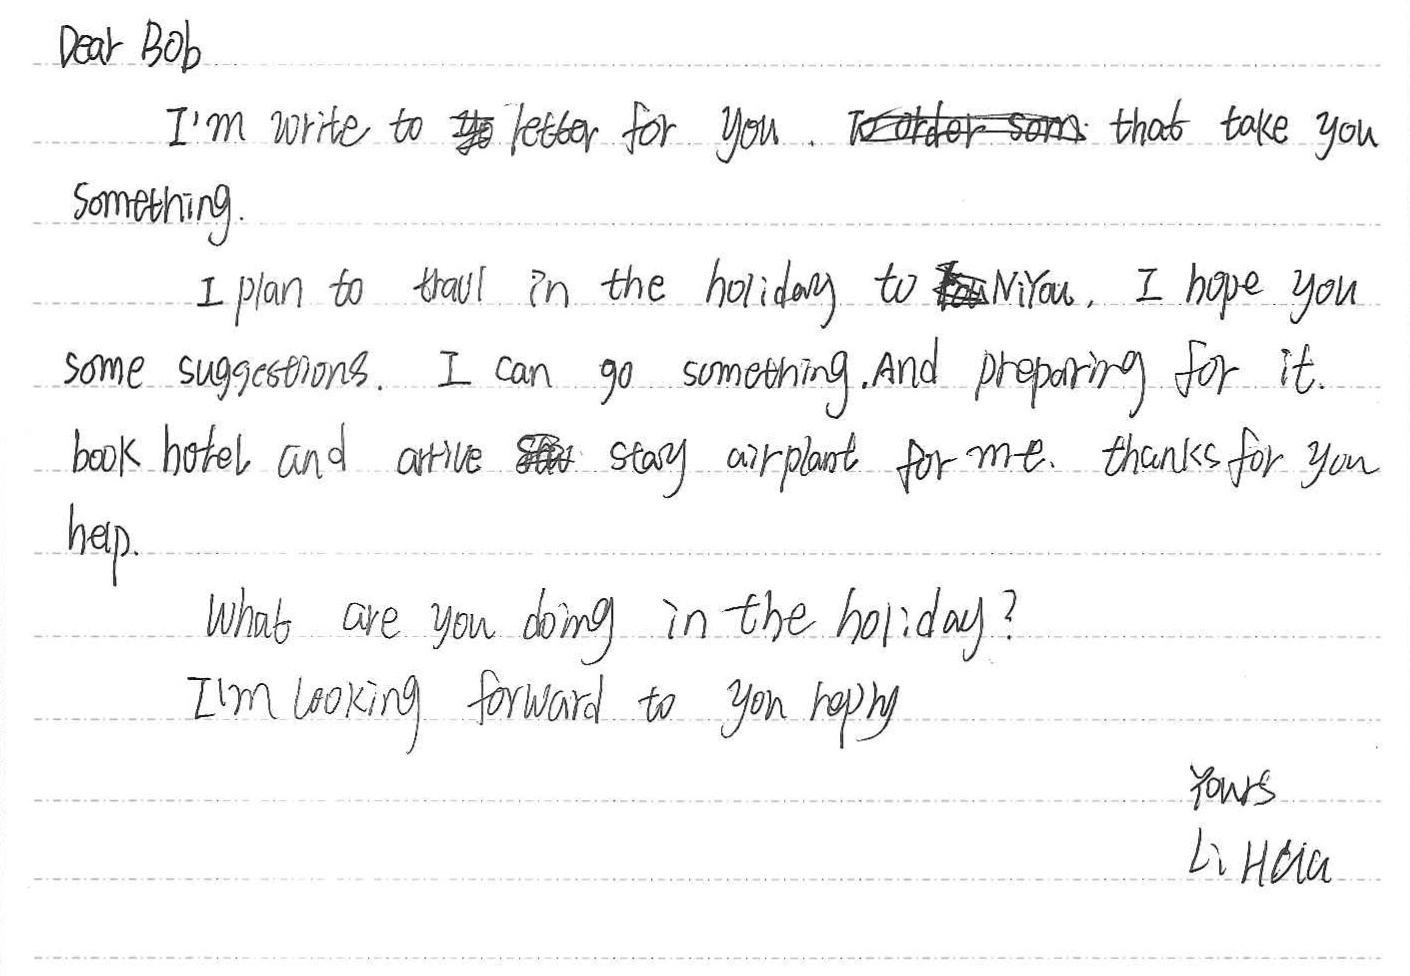 Dear Bob
I'm write to letter for you. that take you
something.
I plan to travl in the holiday to NiYou. I hope you
some suggestions. I can go something. And preparing for it.
book hotel and arrive stay airplant for me. thanks for you
help.
What are you doing in the holiday?
I'm looking forward to you reply
Yours
Li Hua